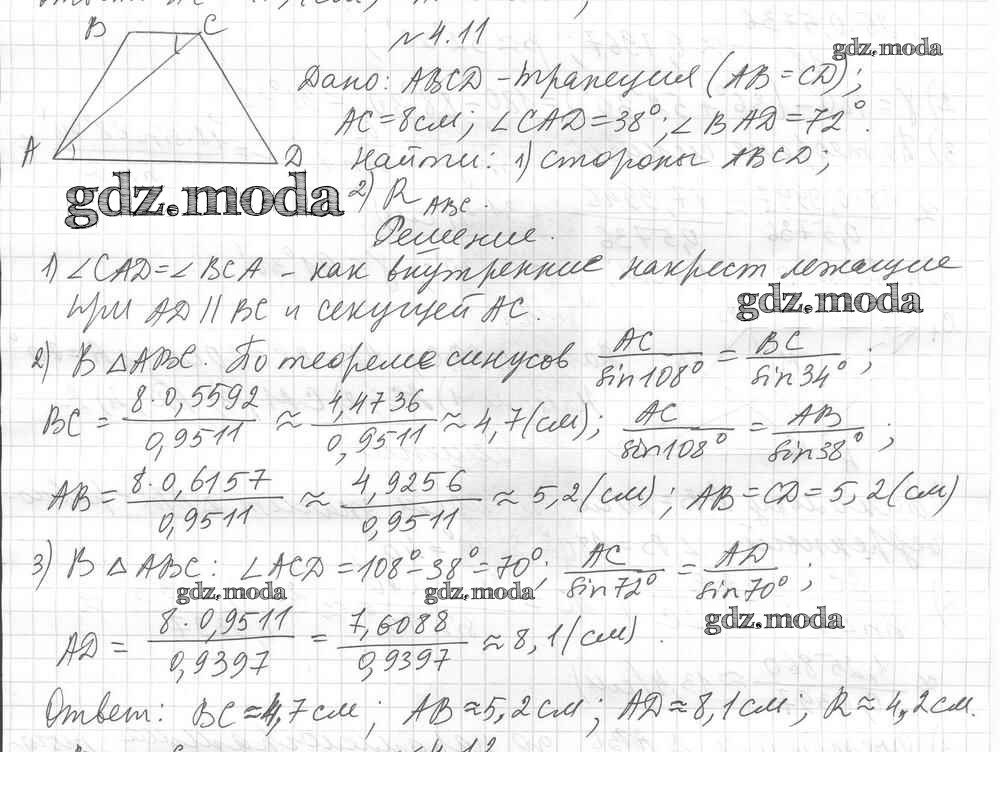 B C
№4.11
gdz.moda
Дано: ABCD - трапеция (AB = CD);
AC = 8 см; ∠CAD = 38°; ∠BAD = 72°.
A D
Найти: 1) стороны ABCD;
gdz.moda
2) R ABC.
Решение.
1) ∠CAD = ∠BCA - как внутренние накрест лежащие
при AD || BC и секущей AC.
gdz.moda
2) В △ABC. По теореме синусов AC/sin108° = BC/sin34°;
BC = 8·0,5592/0,9511 ≈ 4,4736/0,9511 ≈ 4,7 (см); AC/sin108° = AB/sin38°;
AB = 8·0,6157/0,9511 ≈ 4,9256/0,9511 ≈ 5,2 (см); AB = CD = 5,2 (см)
3) В △ABC: ∠ACD = 108° - 38° = 70°; AC/sin72° = AD/sin70°;
gdz.moda gdz.moda
gdz.moda
AD = 8·0,9511/0,9397 = 7,6088/0,9397 ≈ 8,1 (см).
Ответ: BC ≈ 4,7 см; AB ≈ 5,2 см; AD ≈ 8,1 см; R ≈ 4,2 см.